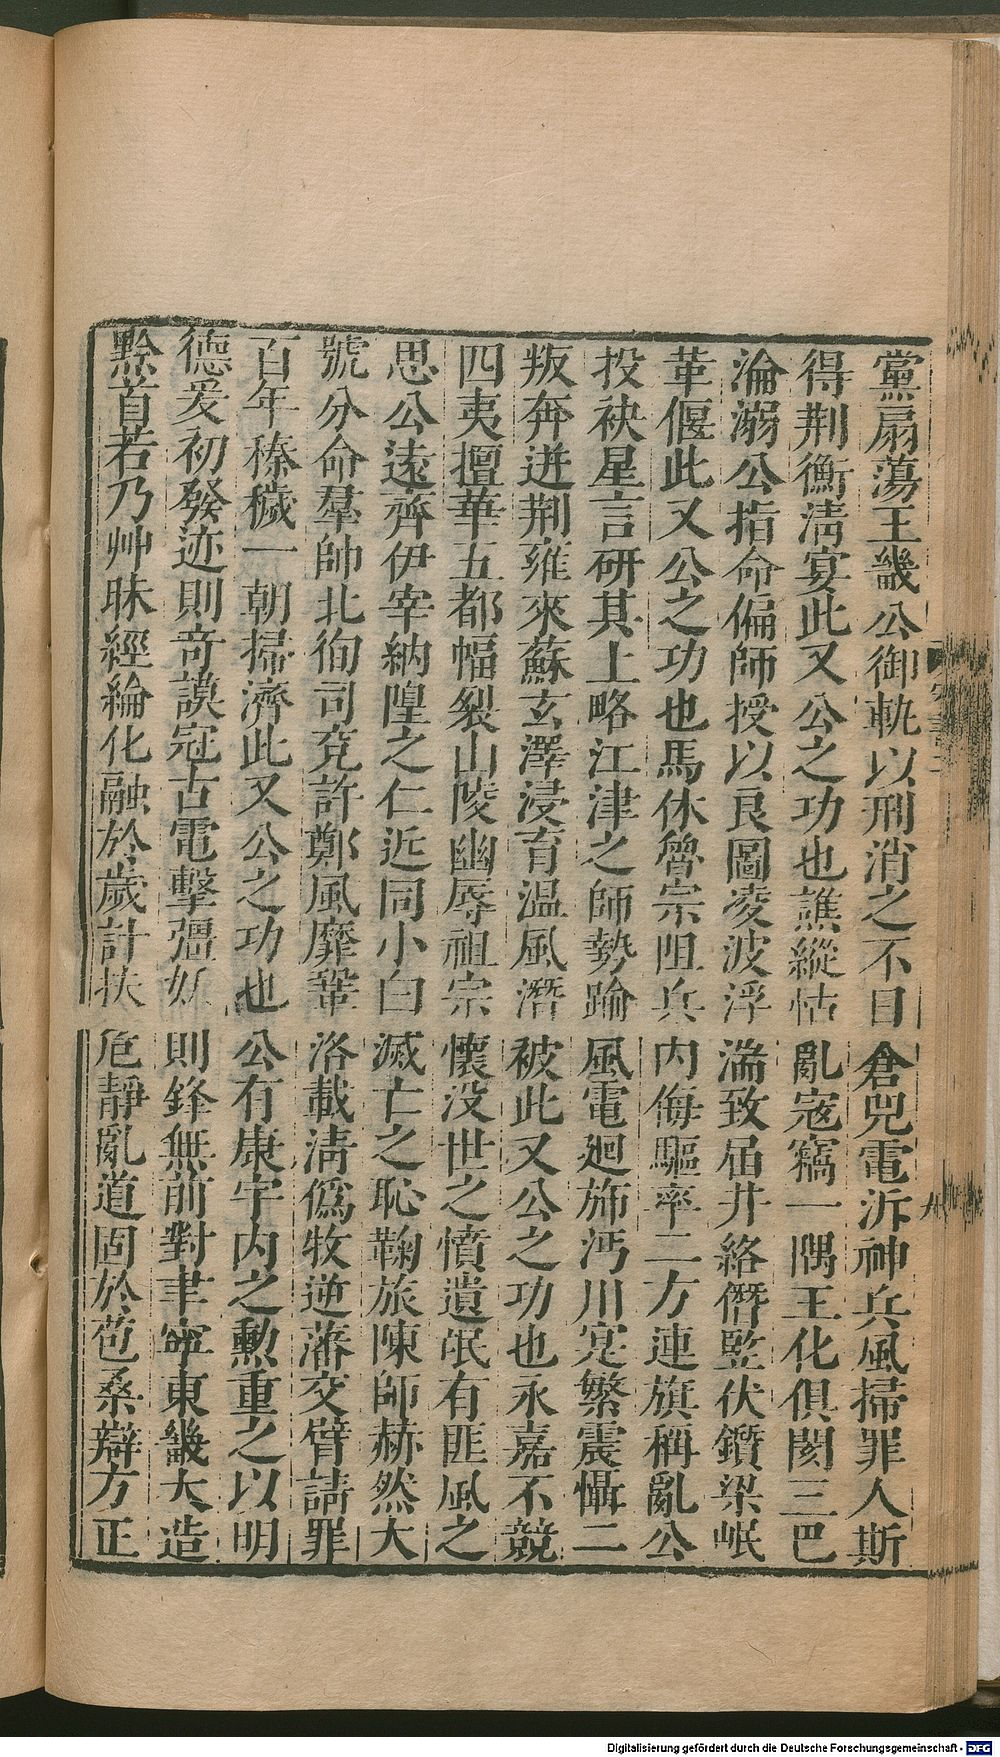 黨扇蕩王畿公御軌以刑消之不目倉兕電泝神兵風掃罪人斯
得荆衡清宴此又公之功也譙縱怙亂寇竊一隅王化俱閡三巴
淪溺公指命偏師授以良圖凌波浮湍致屆井絡僭豎伏鑕梁岷
革偃此又公之功也馬休魯宗阻兵内侮驅率二方連旗稱亂公
投袂星言研其上略江津之師勢踰風電廻斾沔川寔繁震懾二
叛奔迸荆雍來蘇玄澤浸育溫風潛被此又公之功也永嘉不競
四夷擅華五都幅裂山陵幽辱祖宗懷没世之憤遺氓有匪風之
思公遠齊伊宰納隍之仁近同小白滅亡之恥鞠旅陳師赫然大
號分命羣帥北徇司兗許鄭風靡鞏洛載清僞牧逆藩交臂請罪
百年榛穢一朝掃濟此又公之功也公有康宇内之勳重之以明
德爰初發迹則竒謨冠古電擊彊妖則鋒無前對聿寧東畿大造
黔首若乃艸昧經綸化融於歲計扶危靜亂道固於苞桑辯方正
Digitalisierung gefördert durch die Deutsche Forschungsgemeinschaft - DFG